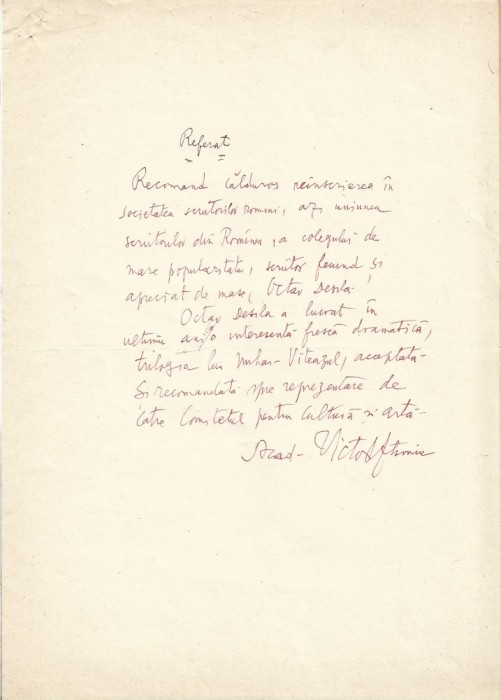 Referat
Recomand călduros reînscrierea în
societatea scriitorilor romini, azi uniunea
scriitorilor din Romînia, a colegului de
mare popularitate, scriitor fecund și
apreciat de mase, Octav Desila.
Octav Desila a lucrat în
ultimii ani, o interesantă frescă dramatică,
trilogia lui Mihai-Viteazul, acceptată
și recomandată spre reprezentare de
către Comitetul pentru cultură și artă-
Acad- Victor Eftimiu